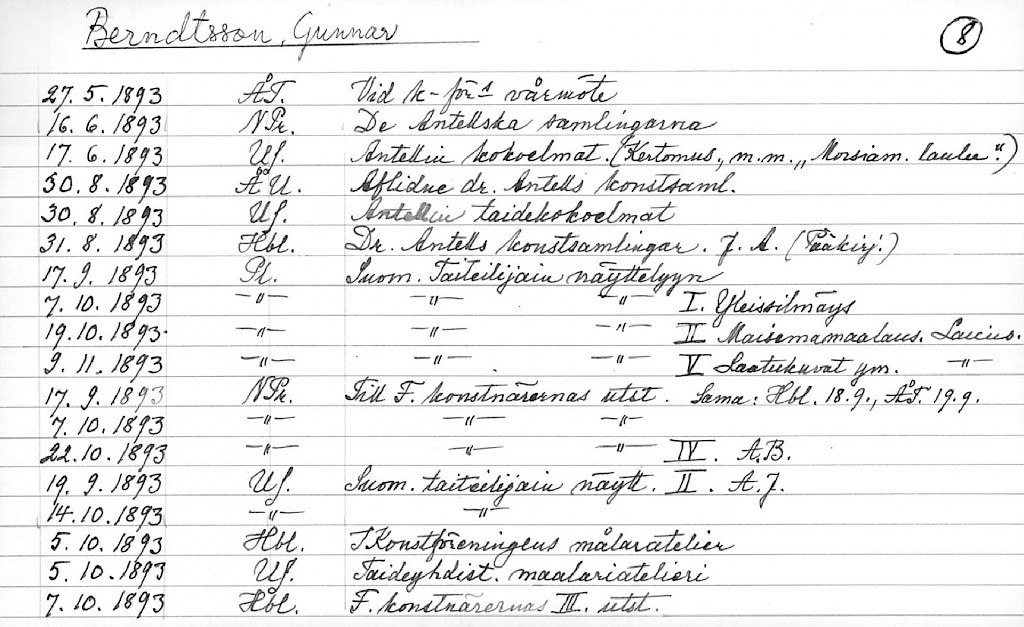 Berndtsson, Gunnar 8
27. 5. 1893 ÅT. Vid k-förs vårmöte
16. 6. 1893 NPr. De Antellska samlingarna
17. 6. 1893 US. Antellin kokoelmat. (Kertomus, m.m. „Morsiam. laulu“.)
30. 8. 1893 ÅU. Aflidne dr. Antells konstsaml.
30. 8. 1893 US. Antellin taidekokoelmat
31. 8. 1893 Hbl. Dr. Antells konstsamlingar. J. A. (Pääkirj.)
17. 9. 1893 Pl. Suom. Taiteilijain näyttelyyn
7. 10. 1893 —"— —"— —"— I. Yleissilmäys
19. 10. 1893. —"— —"— —"— II Maisemamaalaus.
9. 11. 1893 —"— —"— —"— V Laatukuvat ym. —"—
17. 9. 1893 NPr. Till F. konstnärernas utst. Sama: Hbl. 18.9., ÅT. 19.9.
7. 10. 1893 —"— —"— —"—
22. 10. 1893 —"— —"— —"— IV. A.B.
19. 9. 1893 US. Suom. taiteilijain näytt. II. A.J.
14. 10. 1893 —"— —"—
5. 10. 1893 Hbl. Konstföreningens målaratelier
5. 10. 1893 US. Taideyhdist. maalariatelieri
7. 10. 1893 Hbl. F. konstnärernas III. utst.